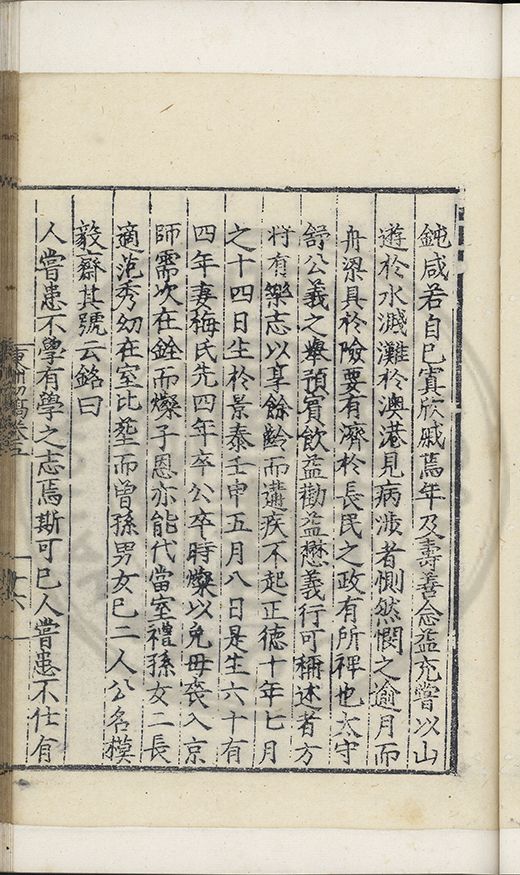 鈍咸若自已寘欣戚焉年及壽善念益充嘗以山
遊於水濺灘於澳港見病涉者惻然憫之逾月而
舟梁具於險要有濟於長民之政有所裨也太守
舒公義之舉預賔飲益勸益懋義行可稱述者方
將有樂志以享餘齡而遘疾不起正德十年七月
之十四日生於景泰壬申五月八日是生六十有
四年妻梅氏先四年卒公卒時燦以免毋喪入京
師需次在銓而燦子恩亦能代當室禮孫女二長
適范秀幼在室比塟而曾孫男女已二人公名模
毅齋其號云銘曰
人嘗患不學有學之志焉斯可已人嘗患不仕有
東洲初稿卷五
十六